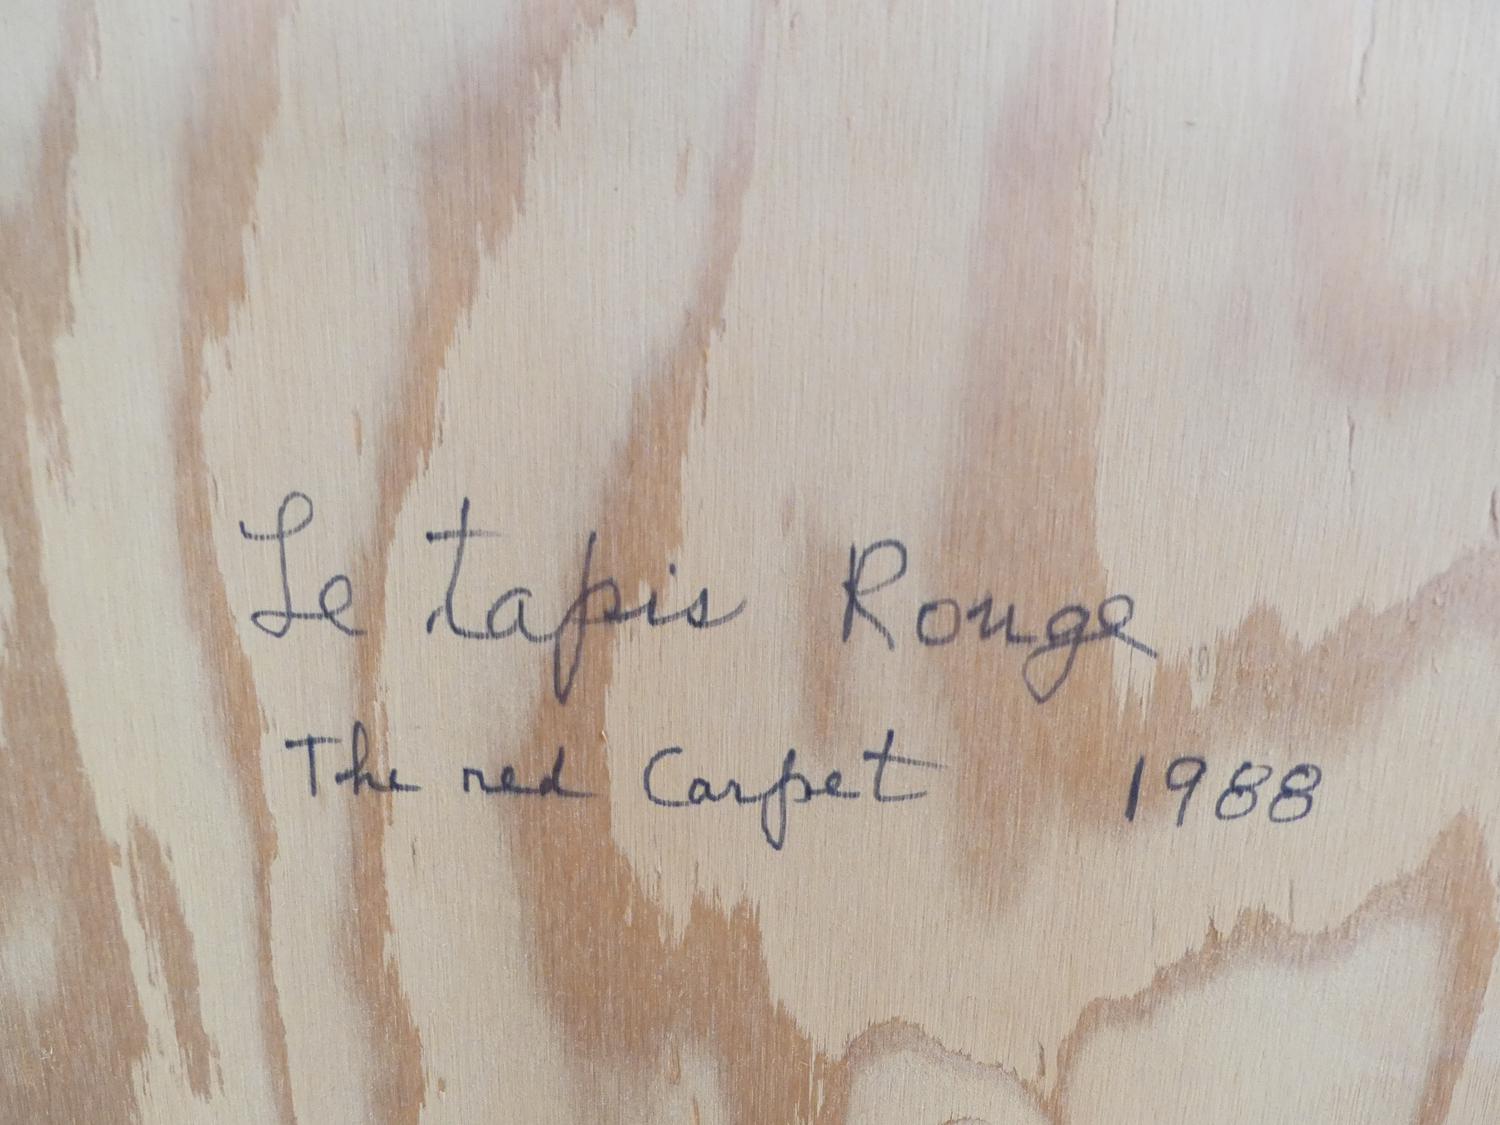 Le tapis Rouge
The red Carpet 1988